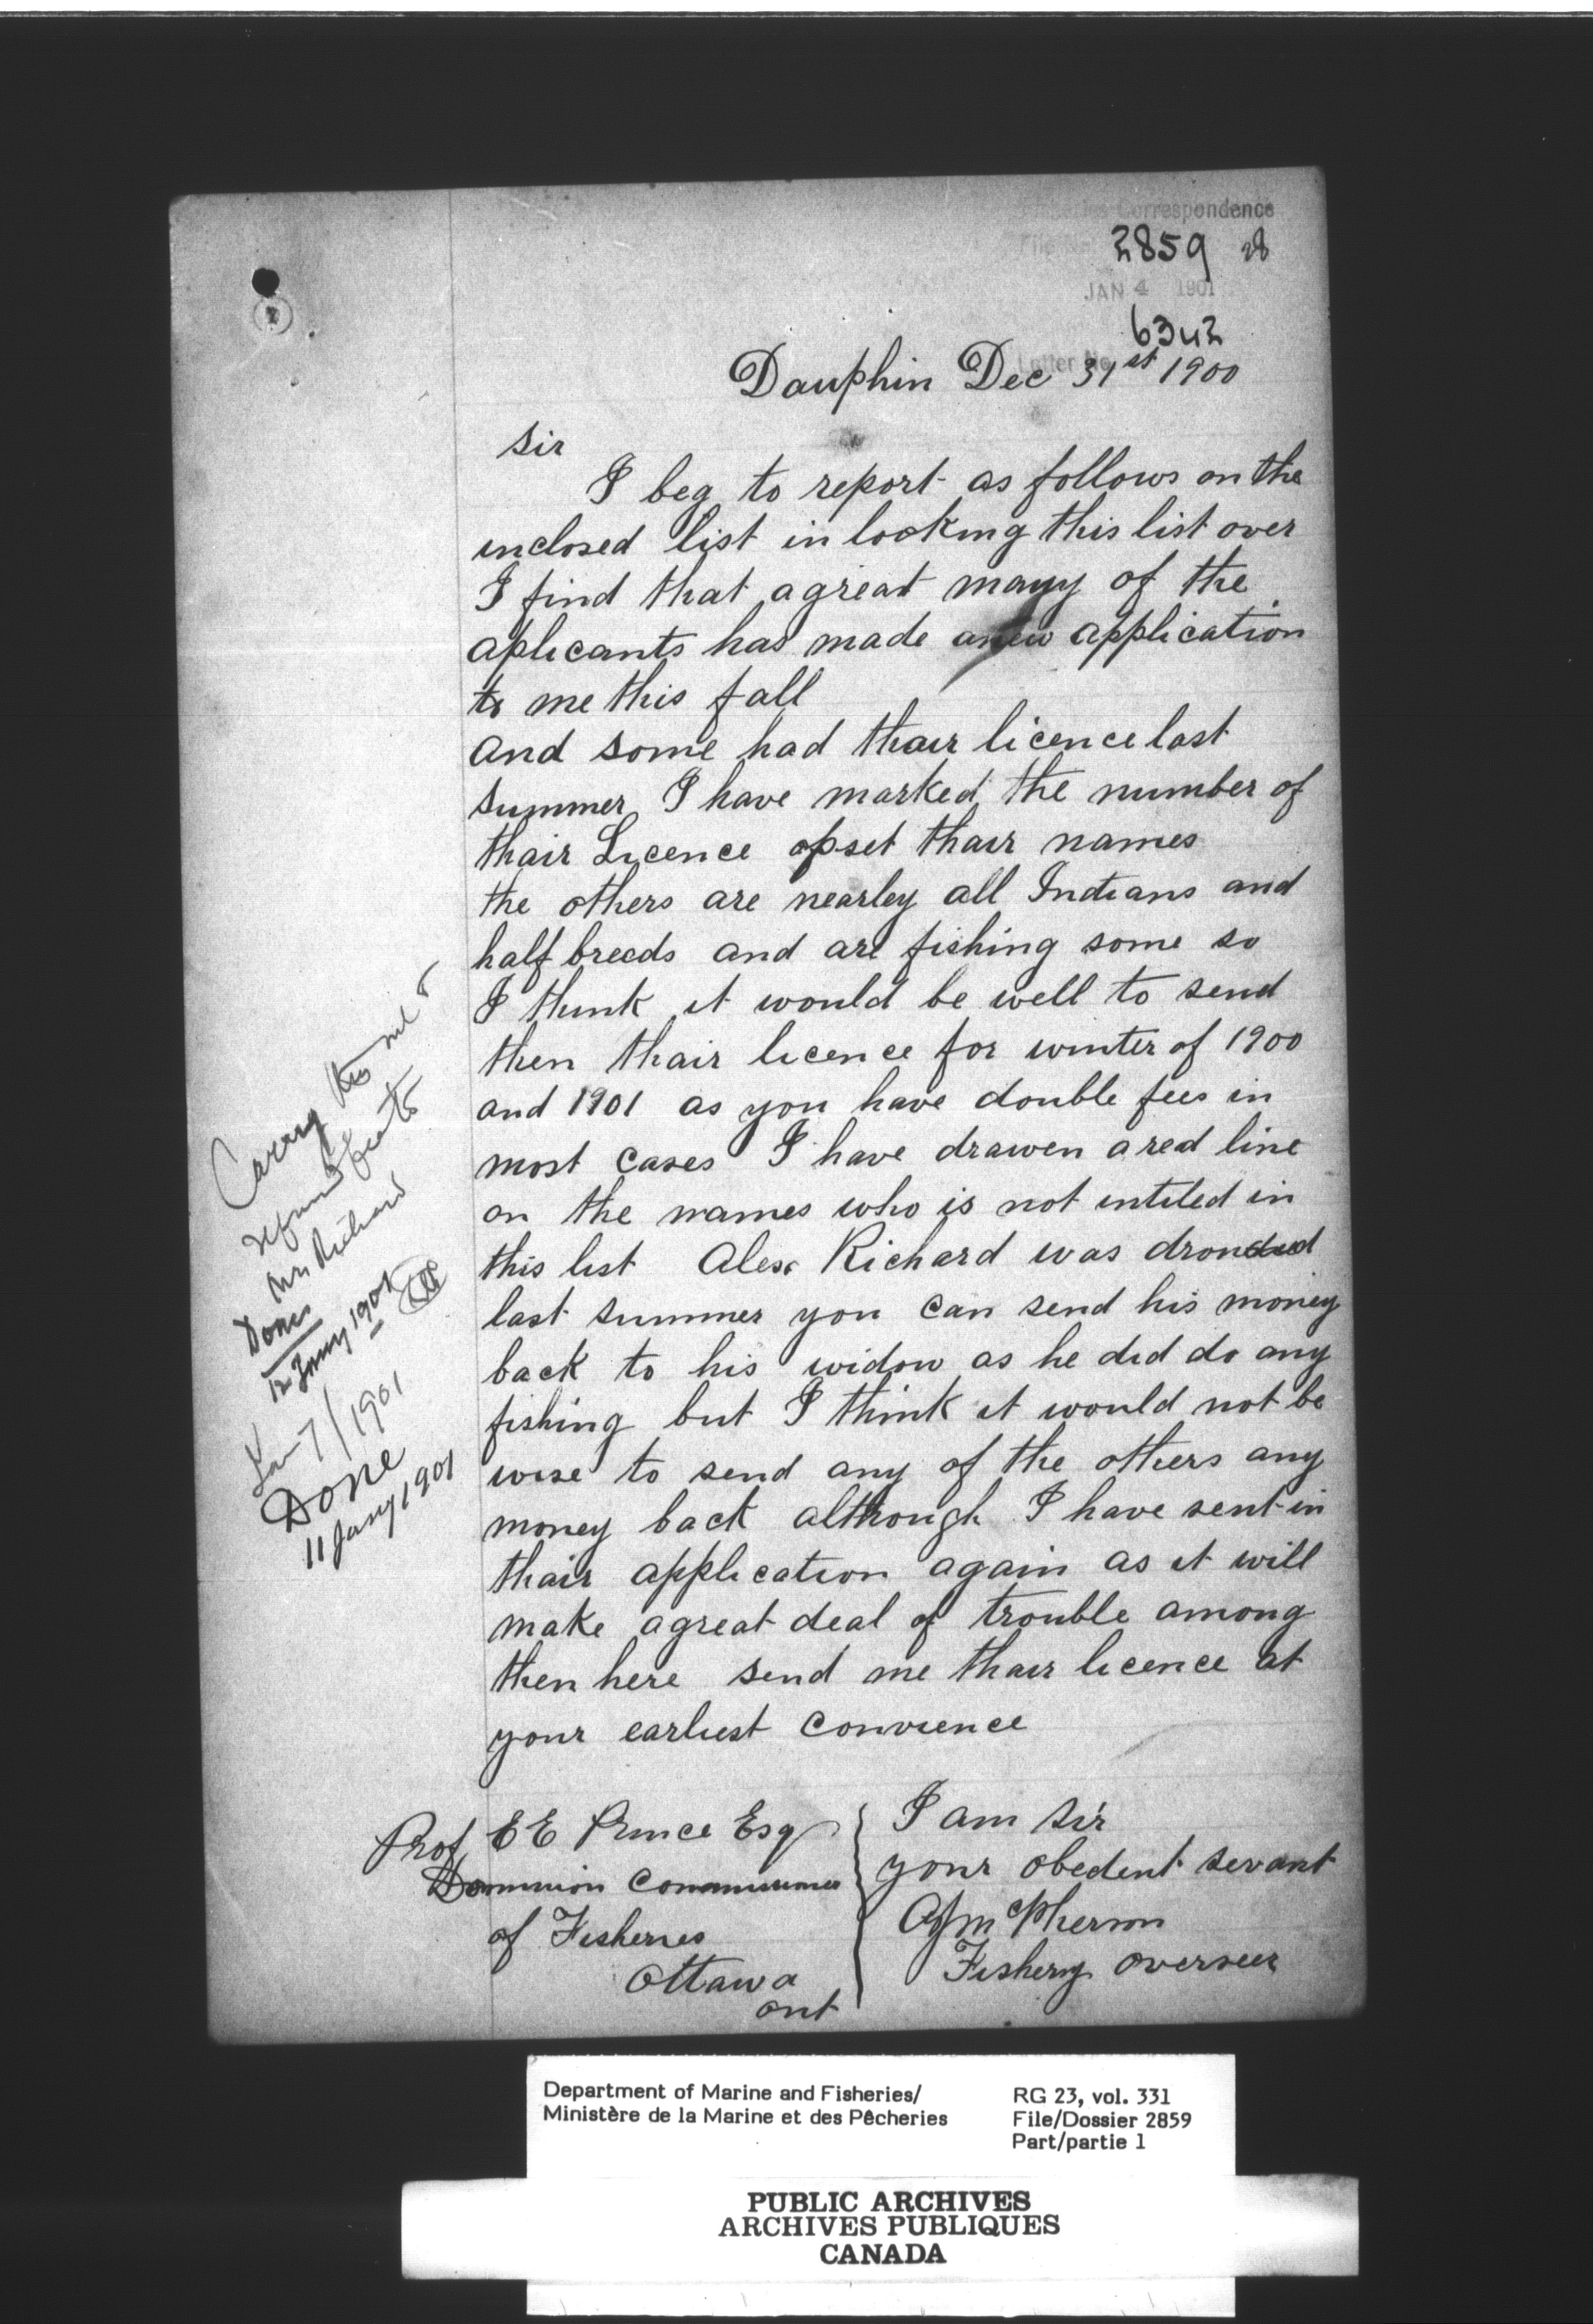 Fisheries Correspondence
File No. 2859 28
JAN 4 1901
6342
Letter No.
Dauphin Dec 31st 1900
Sir
I beg to report as follows on the
inclosed list in looking this list over
I find that a great many of the
aplicants has made a new application
to me this fall
and some had thair licence last
summer I have marked the number of
thair Licence opset thair names
the others are nearley all Indians and
half breeds and are fishing some so
I think it would be well to send
then thair licence for winter of 1900
and 1901 as you have double fees in
most cases I have drawen a red line
on the names who is not intiled in
this list Alex Richard was dronded
last summer you can send his money
back to his widow as he did do any
fishing but I think it would not be
wise to send any of the others any
money back although I have sent in
thair application again as it will
make a great deal of trouble among
then here send me thair licence at
your earliest convience
I am Sir
your obedent servant
A J McPherson
Fishery overseer
Prof E E Prince Esq
Dominion Commissioner
of Fisheries
Ottawa
ont
Carry this out &
refund fee to
Mrs Richard
Done
12 Jany 1901
7/1901
Done
11 Jany 1901
Department of Marine and Fisheries/
Ministère de la Marine et des Pêcheries
RG 23, vol. 331
File/Dossier 2859
Part/partie 1
PUBLIC ARCHIVES
ARCHIVES PUBLIQUES
CANADA